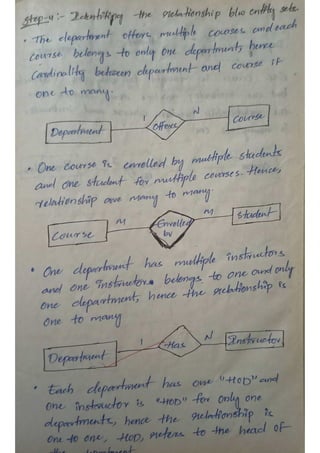 Step-4 :- Identifying the relationship b/w entity sets
• The department offers multiple courses and each
course belongs to only one department, hence
Cardinality between department and course is
one to many.
Department 1 Offers N Course
• One course is enrolled by multiple students
and one student for multiple courses. Hence,
relationship are many to many.
Course M Enrolled by M Student
• One department has multiple instructors
and one instructor belongs to one and only
one department, hence the relationship is
one to many
Department 1 Has N Instructor
• Each department has one "HOD" and
one instructor is "HOD" for only one
department, hence the relationship is
one to one, HOD, refers to the head of
the department